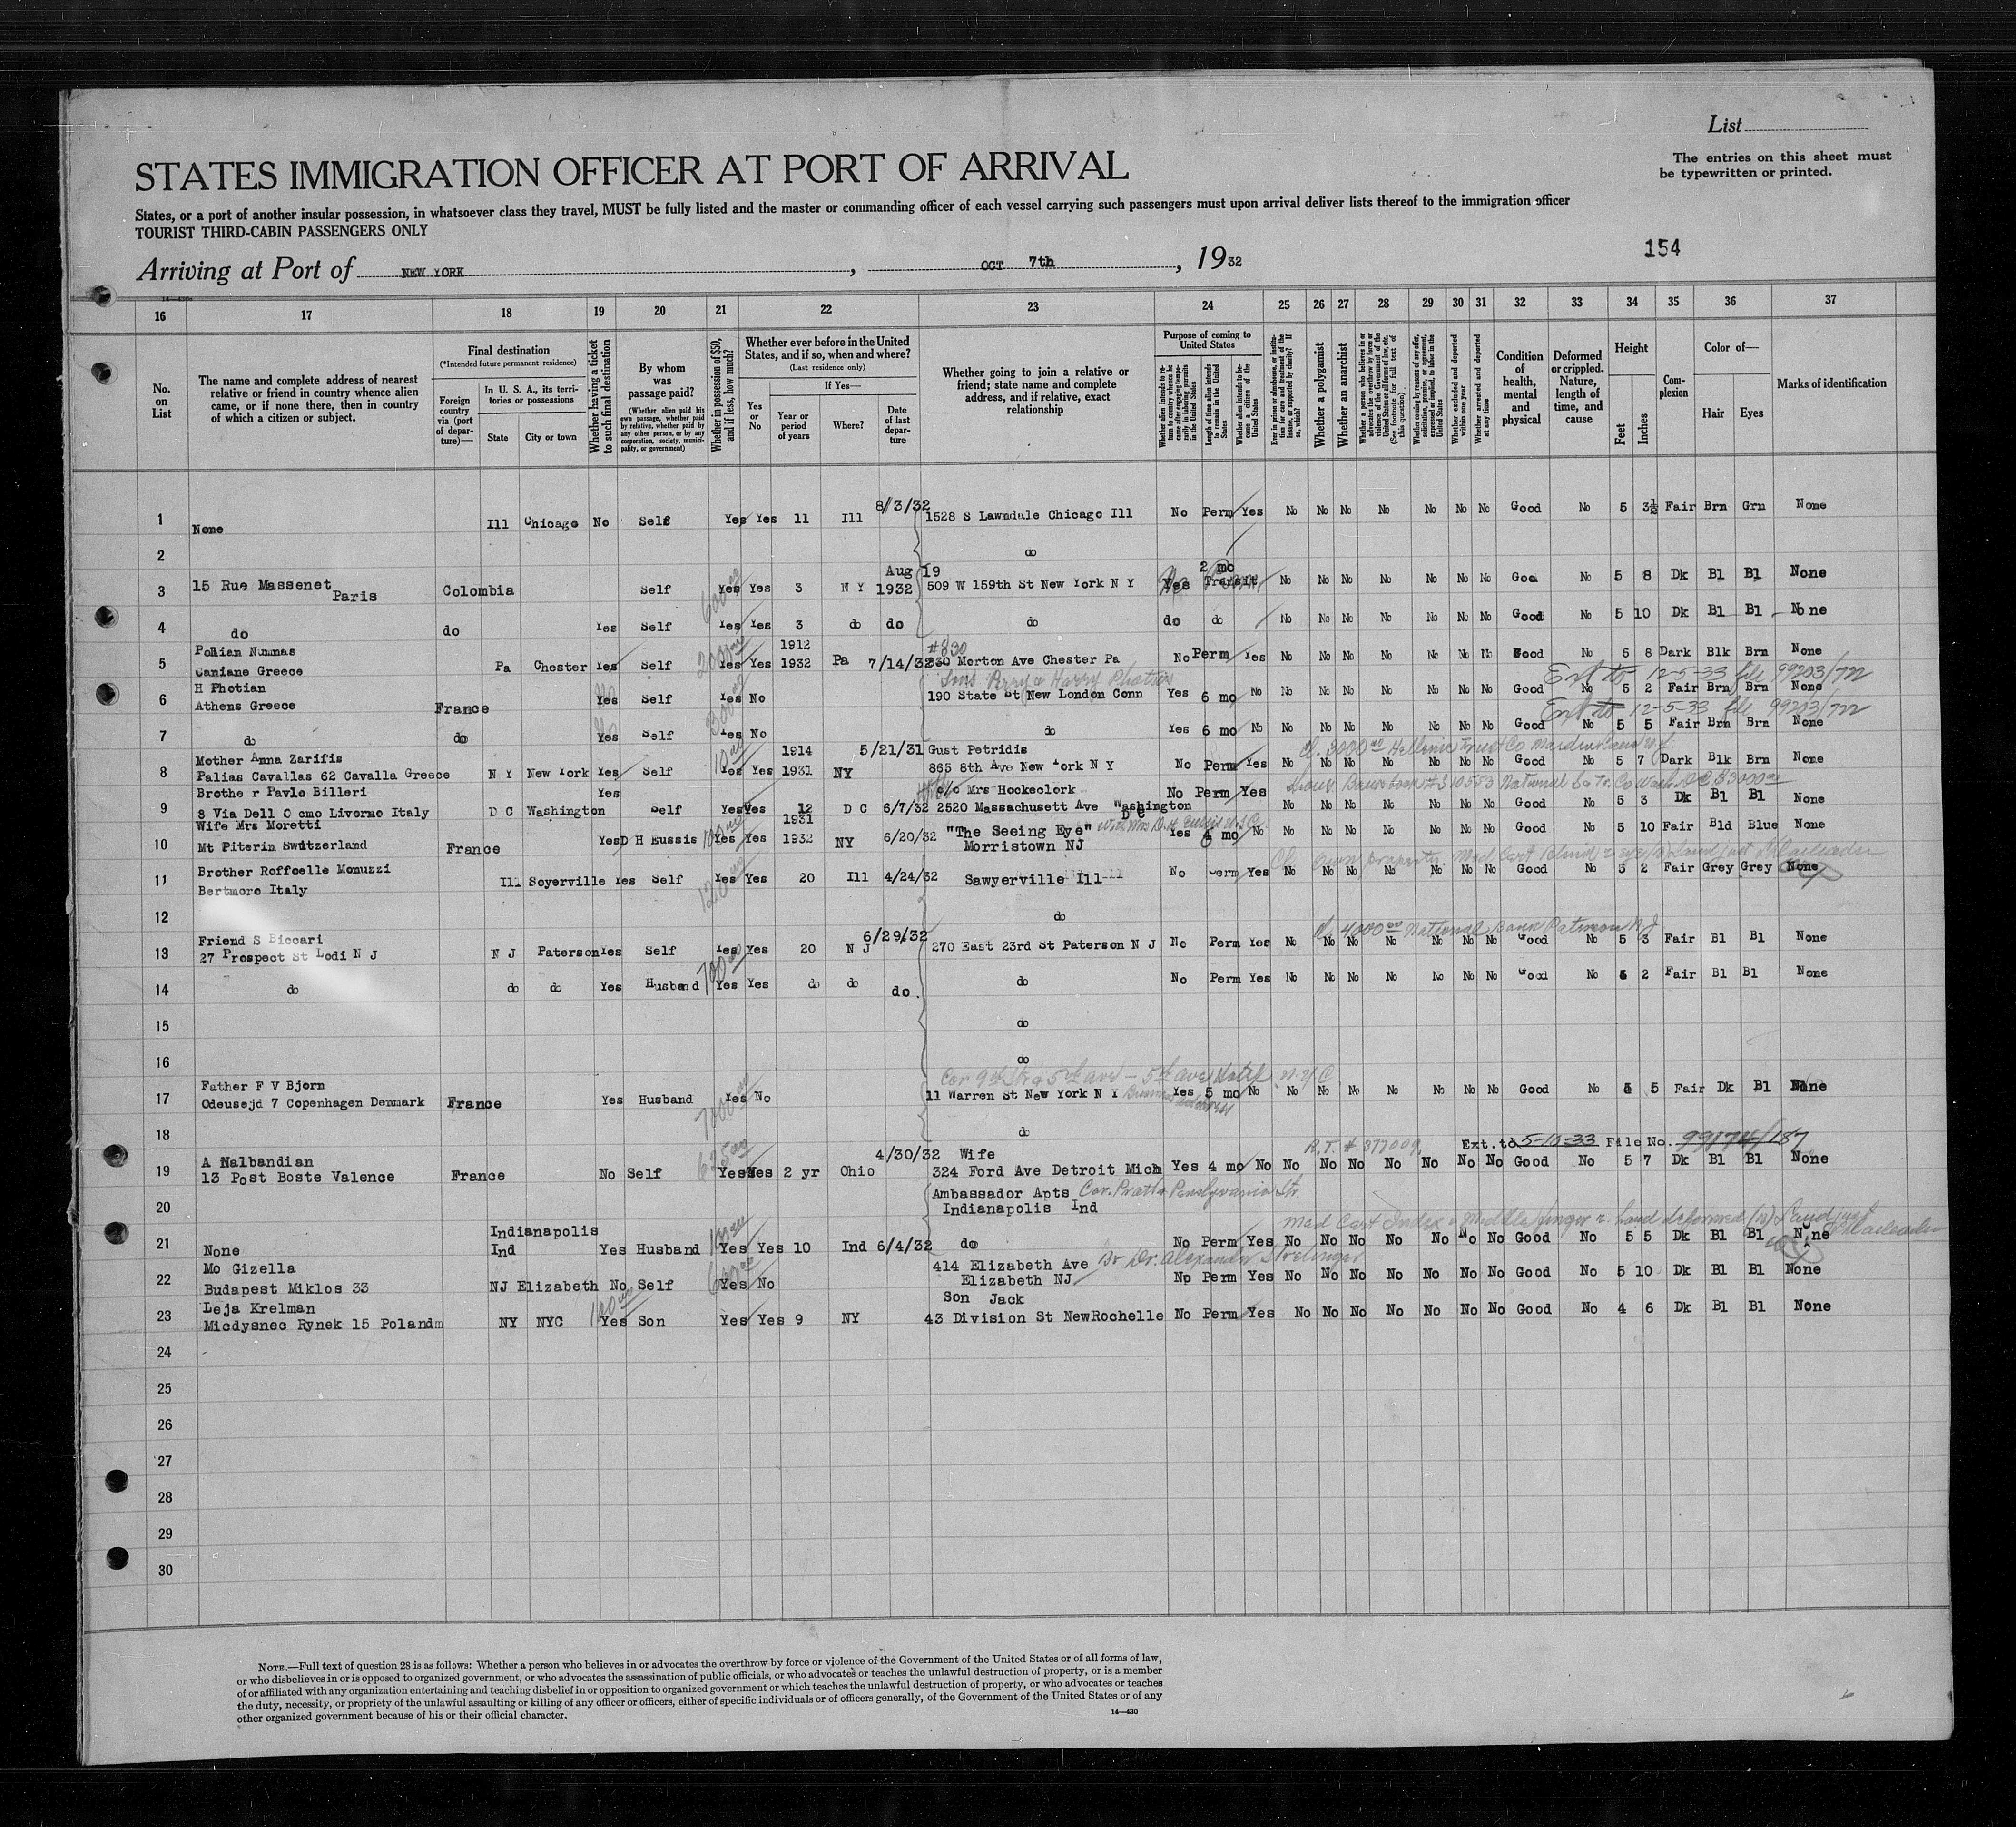 List
The entries on this sheet must
be typewritten or printed.
STATES IMMIGRATION OFFICER AT PORT OF ARRIVAL
States, or a port of another insular possession, in whatsoever class they travel, MUST be fully listed and the master or commanding officer of each vessel carrying such passengers must upon arrival deliver lists thereof to the immigration officer
TOURIST THIRD-CABIN PASSENGERS ONLY
154
Arriving at Port of NEW YORK, OCT 7th, 1932
16 17 18 19 20 21 22 23 24 25 26 27 28 29 30 31 32 33 34 35 36 37
No. on List
The name and complete address of nearest relative or friend in country whence alien came, or if none there, then in country of which a citizen or subject.
Final destination
(*Intended future permanent residence)
Foreign country via (port of departure)—
In U. S. A., its territories or possessions
State City or town
Whether having a ticket to such final destination
By whom was passage paid?
(Whether alien paid his own passage, whether paid by relative, whether paid by any other person, or by any corporation, society, municipality, or government)
Whether in possession of $50, and if less, how much?
Whether ever before in the United States, and if so, when and where?
(Last residence only)
If Yes—
Yes or No
Year or period of years
Where?
Date of last departure
Whether going to join a relative or friend; state name and complete address, and if relative, exact relationship
Purpose of coming to United States
Length of time alien intends to remain in the United States
Whether alien intends to become a citizen of the United States
Whether a polygamist
Whether an anarchist
Whether excluded and deported within one year
Whether arrested and deported at any time
Condition of health, mental and physical
Deformed or crippled. Nature, length of time, and cause
Height
Feet Inches
Complexion
Color of—
Hair Eyes
Marks of identification
1 None Ill Chicago No Self Yes Yes 11 Ill 8/3/32 1528 S Lawndale Chicago Ill No Perm Yes No No No No No No No Good No 5 3½ Fair Brn Grn None
2 do
3 15 Rue Massenet Paris Colombia Self Yes Yes 3 N Y Aug 19 1932 509 W 159th St New York N Y Yes 2 mo Transit No No No No No No No Good No 5 8 Dk Bl Bl None
4 do do Yes Self Yes Yes 3 do do do do do No No No No No No No Good No 5 10 Dk Bl Bl None
5 Caniane Greece Pa Chester Yes Self Yes Yes 1912 1932 Pa 7/14/32 #830 Morton Ave Chester Pa No Perm Yes No No No No No No No Good No 5 8 Dark Blk Brn None
Ext to 12-5-33 file 99203/722
6 H Photian Athens Greece France Yes Self Yes No 190 State St New London Conn Yes 6 mo No No No No No No No No Good No 5 2 Fair Brn Brn None
Ext to 12-5-33 file 99203/722
7 do do Yes Self Yes No do Yes 6 mo No No No No No No No No Good No 5 5 Fair Brn Brn None
8 Mother Anna Zarifis Palias Cavallas 62 Cavalla Greece N Y New York Yes Self Yes Yes 1914 1931 NY 5/21/31 Gust Petridis 865 8th Ave New York N Y No Perm Yes No No No No No No No Good No 5 7 Dark Blk Brn None
9 Brother Pavlo Billeri 8 Via Dell O omo Livorno Italy D C Washington Yes Self Yes Yes 12 D C 6/7/32 c/o Mrs Hockeclork 2520 Massachusett Ave Washington DC No Perm Yes No No No No No No No Good No 5 3 Dk Bl Bl None
10 Wife Mrs Moretti Mt Piterin Switzerland France Yes D H Eussis Yes Yes 1931 1932 NY 6/20/32 "The Seeing Eye" Morristown NJ Yes 6 mo No No No No No No No No Good No 5 10 Fair Bld Blue None
11 Brother Roffcelle Monuzzi Bertmoro Italy Ill Soyerville Yes Self Yes Yes 20 Ill 4/24/32 Sawyerville Ill No Perm Yes No No No No No No No Good No 5 2 Fair Grey Grey None
12 do
13 Friend S Biccari 27 Prospect St Lodi N J N J Paterson Yes Self Yes Yes 20 N J 6/29/32 270 East 23rd St Paterson N J No Perm Yes No No No No No No No Good No 5 3 Fair Bl Bl None
14 do do do Yes Husband Yes Yes do do do. do No Perm Yes No No No No No No No Good No 5 2 Fair Bl Bl None
15 do
16 do
17 Father F V Bjorn Odeusejd 7 Copenhagen Denmark France Yes Husband Yes No 11 Warren St New York N Y Yes 5 mo No No No No No No No No Good No 5 5 Fair Dk Bl None
18 do
R.T. # 377009 Ext. to 5-10-33 File No. 99174/187
19 A Nalbandian 13 Post Boste Valence France No Self Yes Yes 2 yr Ohio 4/30/32 Wife 324 Ford Ave Detroit Mich Yes 4 mo No No No No No No No No Good No 5 7 Dk Bl Bl None
20 Ambassador Apts Indianapolis Ind
21 None Indianapolis Ind Yes Husband Yes Yes 10 Ind 6/4/32 do No Perm Yes No No No No No No No Good No 5 5 Dk Bl Bl None
22 Mo Gizella Budapest Miklos 33 NJ Elizabeth No Self Yes No 414 Elizabeth Ave Elizabeth NJ No Perm Yes No No No No No No No Good No 5 10 Dk Bl Bl None
23 Leja Krelman Micdysnec Rynek 15 Polandm NY NYC Yes Son Yes Yes 9 NY Son Jack 43 Division St NewRochelle No Perm Yes No No No No No No No Good No 4 6 Dk Bl Bl None
24
25
26
27
28
29
30
NOTE.—Full text of question 28 is as follows: Whether a person who believes in or advocates the overthrow by force or violence of the Government of the United States or of all forms of law,
or who disbelieves in or is opposed to organized government, or who advocates the assassination of public officials, or who advocates or teaches the unlawful destruction of property, or is a member
of or affiliated with any organization entertaining and teaching disbelief in or opposition to organized government or which teaches the unlawful destruction of property, or who advocates or teaches
the duty, necessity, or propriety of the unlawful assaulting or killing of any officer or officers, either of specific individuals or of officers generally, of the Government of the United States or of any
other organized government because of his or their official character.
14—430